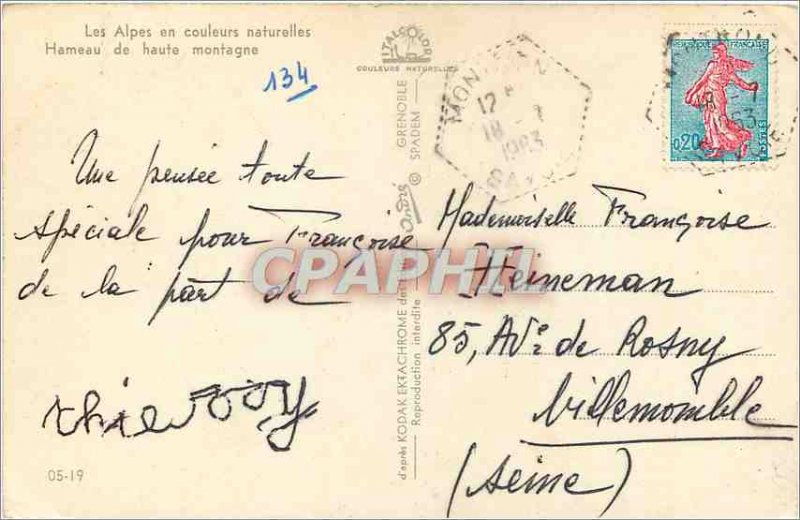 Les Alpes en couleurs naturelles
Hameau de haute montagne
134
ITALCOLOR
COULEURS NATURELLES
REPUBLIQUE FRANCAISE
0,20
POSTES
18 - 1
1963
Une pensée toute
spéciale pour Françoise
de la part de
05-19
GRENOBLE
© SPADEM
d'après KODAK EKTACHROME de
Reproduction interdite
Mademoiselle Françoise
Heineman
85, Ave de Rosny
Villemomble
(Seine)
CPAPHIL